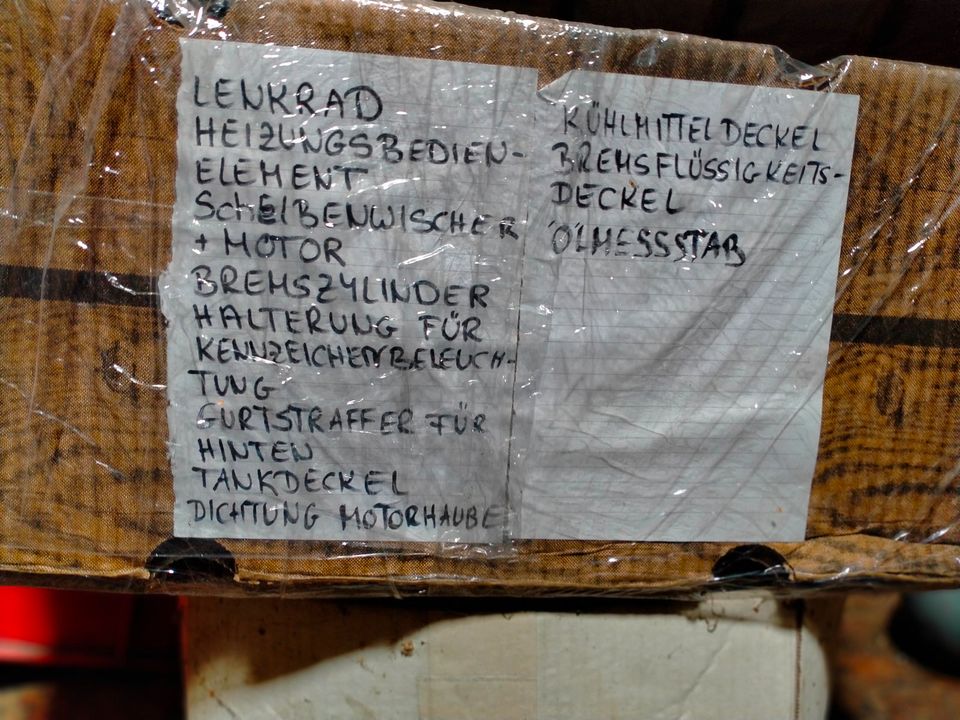 LENKRAD
HEIZUNGSBEDIEN-
ELEMENT
ScHEIBENWISCHER
+ MOTOR
BREMSZYLINDER
HALTERUNG FÜR
KENNZEICHENBELEUCH-
TUNG
GURTSTRAFFER FÜR
HINTEN
TANKDECKEL
DICHTUNG MOTORHAUBE
KÜHLMITTELDECKEL
BREMSFLÜSSIGKEITS-
DECKEL
ÖLMESSSTAB